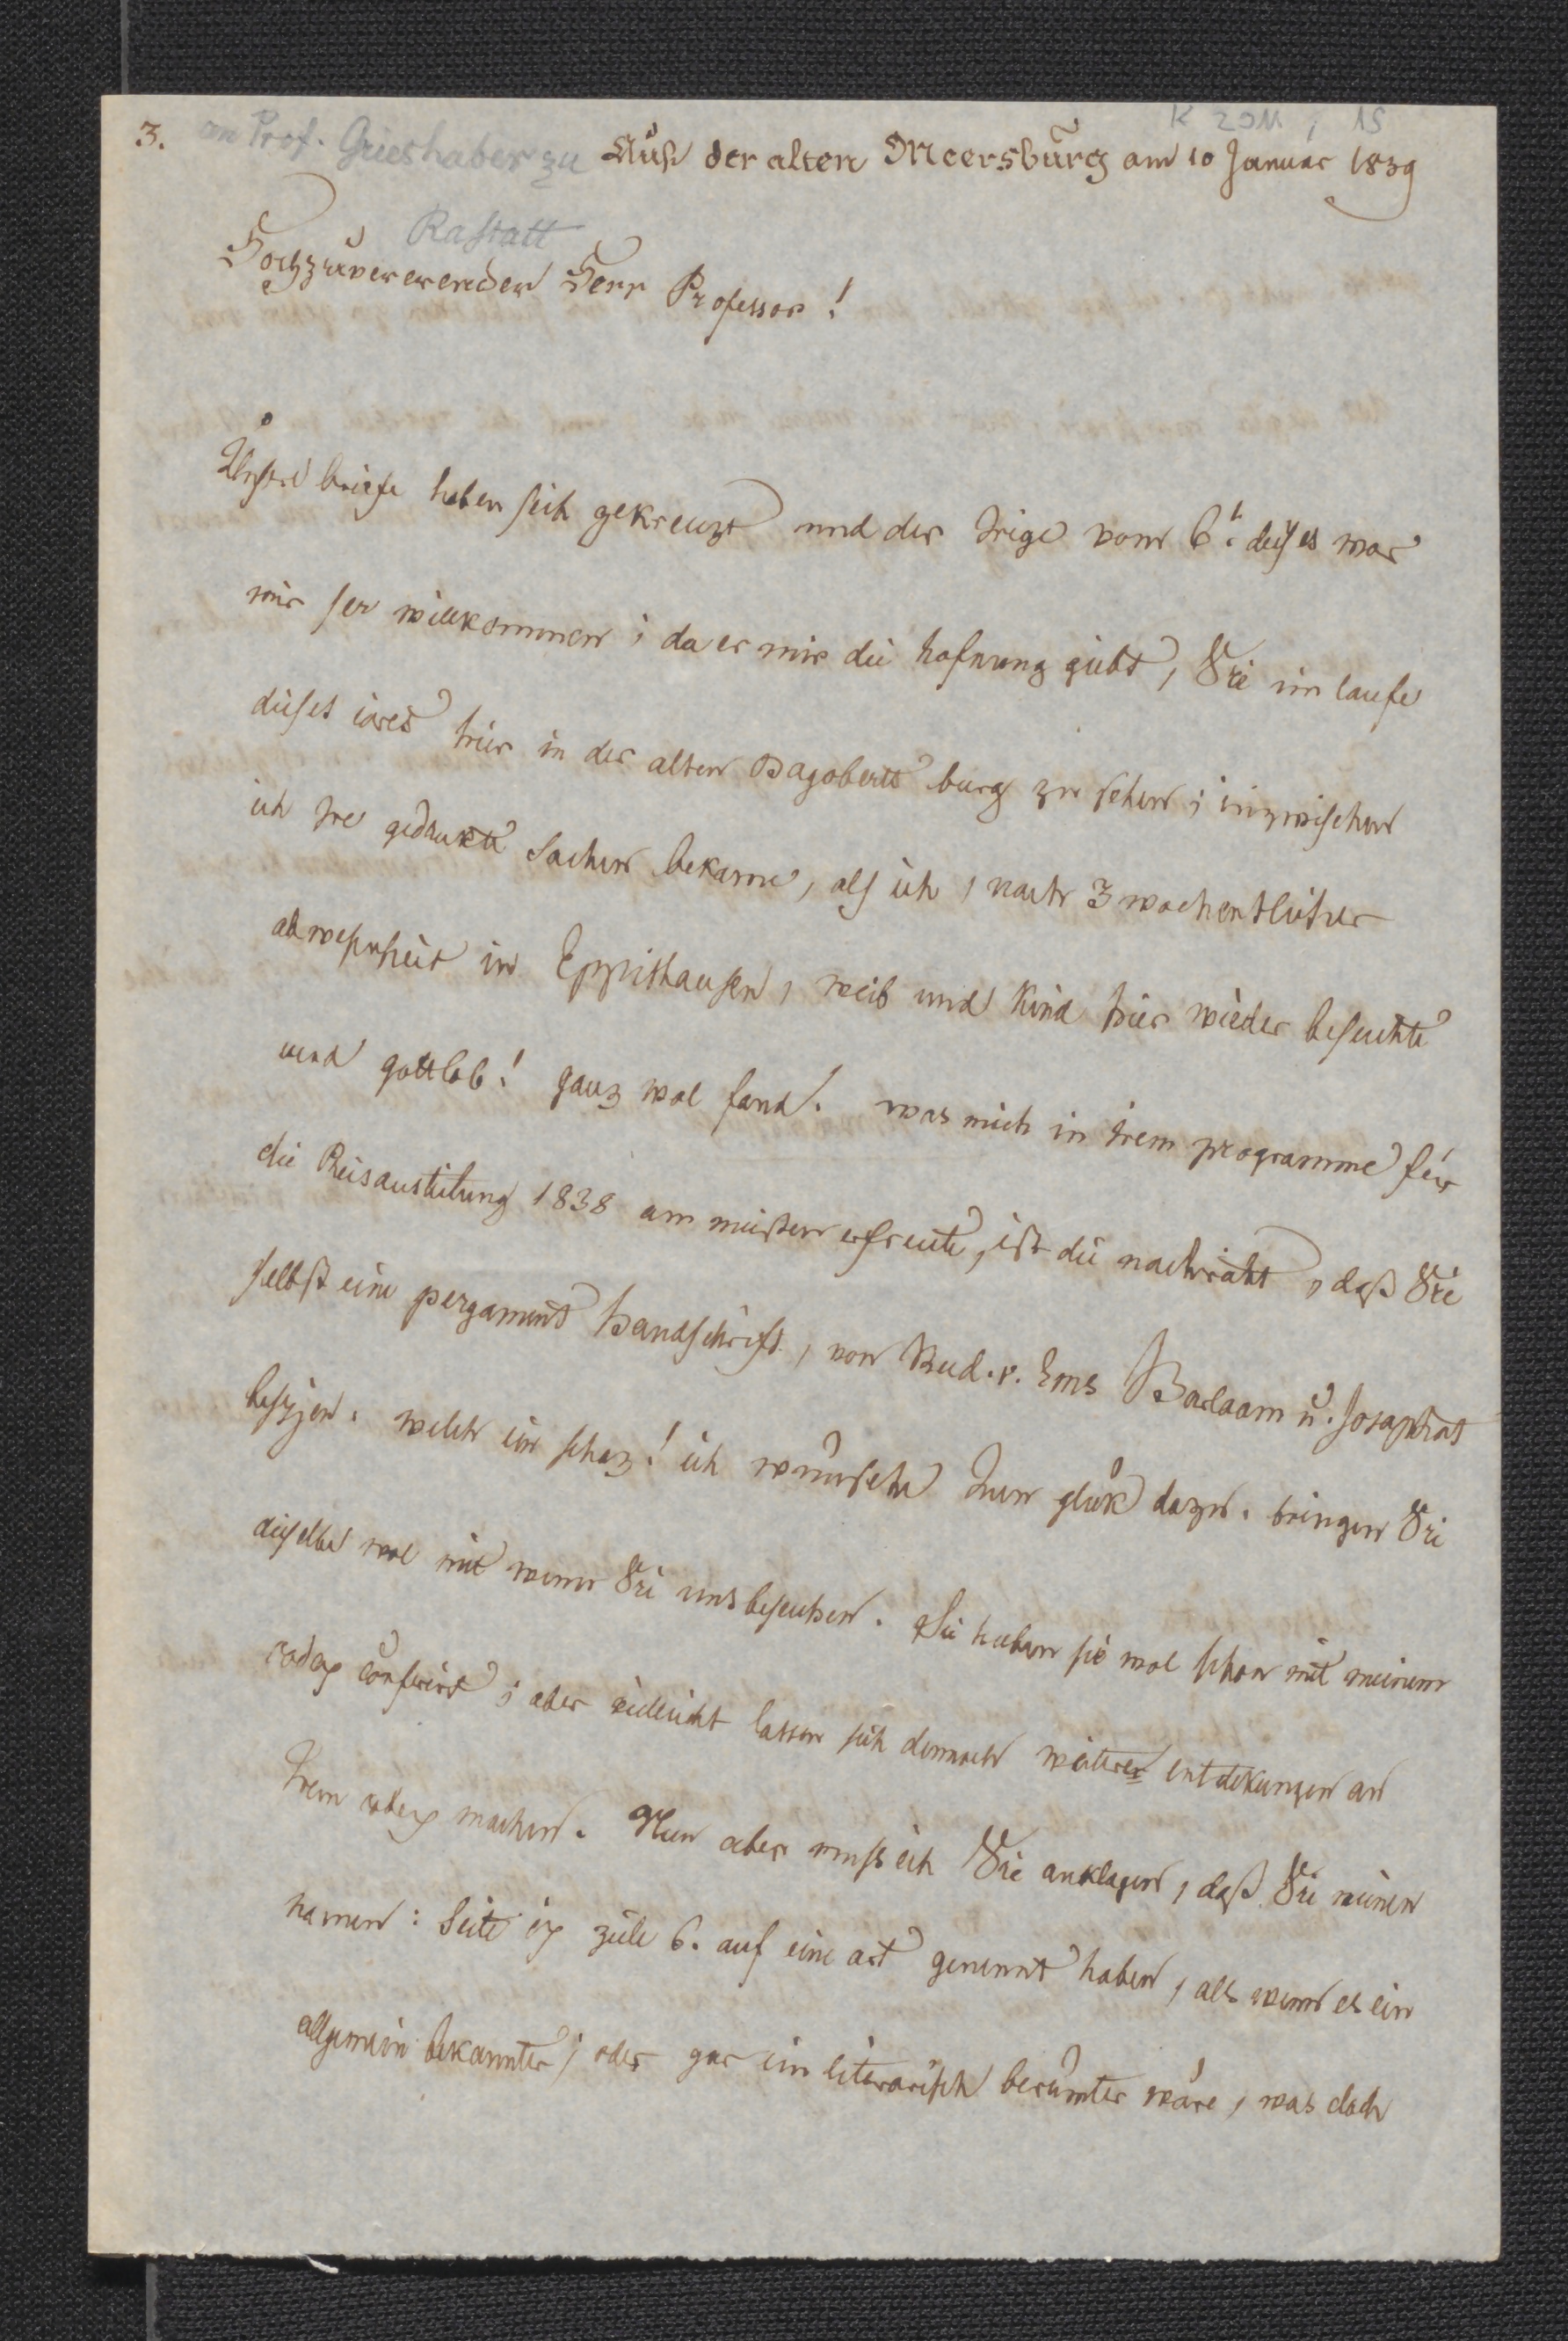 K 2911, 15
3. an Prof. Grieshaber zu Auß der alten Meersburg am 10 Januar 1839
Rastatt
Hochzuvererender Herr Professor!
Unsere briefe haben sich gekreuzt und der Irige vom 6t. dises war
mir ser willkommen; da er mir die hofnung giebt, Sie im laufe
dieses iares hier in der alten Dagoberts burg zu sehen; inzwischen
ich Ire gedrukte sachen bekame, als ich, nach 3 wochentlicher
abwesenheit in Eppishausen, weib und kind hier wieder besuchte
und gottlob! ganz wol fand. was mich in Irem programme für
die Preisausteilung 1838 am meisten erfreute, ist die nachricht, daß Sie
selbst eine pergament handschrift, von Rud. v. Ems Barlaam u. Josaphat
besizzen. welch ein schaz! ich wünsche Inen glük dazu. bringen Sie
dieselbe wol mit wenn Sie uns besuchen. Sie haben sie wol schon mit meinem
codex conferirt; aber vielleicht lassen sich dennoch weitere entdekungen an
Irem codex machen. Nun aber muß ich Sie anklagen, daß Sie meinen
namen: Seite ix zeile 6. auf eine art genennt haben, als wenn es ein
allgemein bekannter, oder gar ein literarisch berümter wäre, was doch